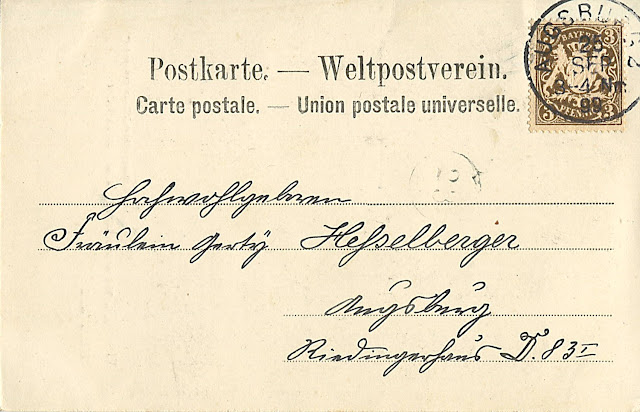 Postkarte. — Weltpostverein.
Carte postale. — Union postale universelle.
AUGSBURG 2
25
SEP
3-4 Nr.
99
3 BAYERN 3
3 3
Hochwohlgeboren
Fräulein Gerty Hesselberger
Augsburg
Riedingerhaus D. 83 I